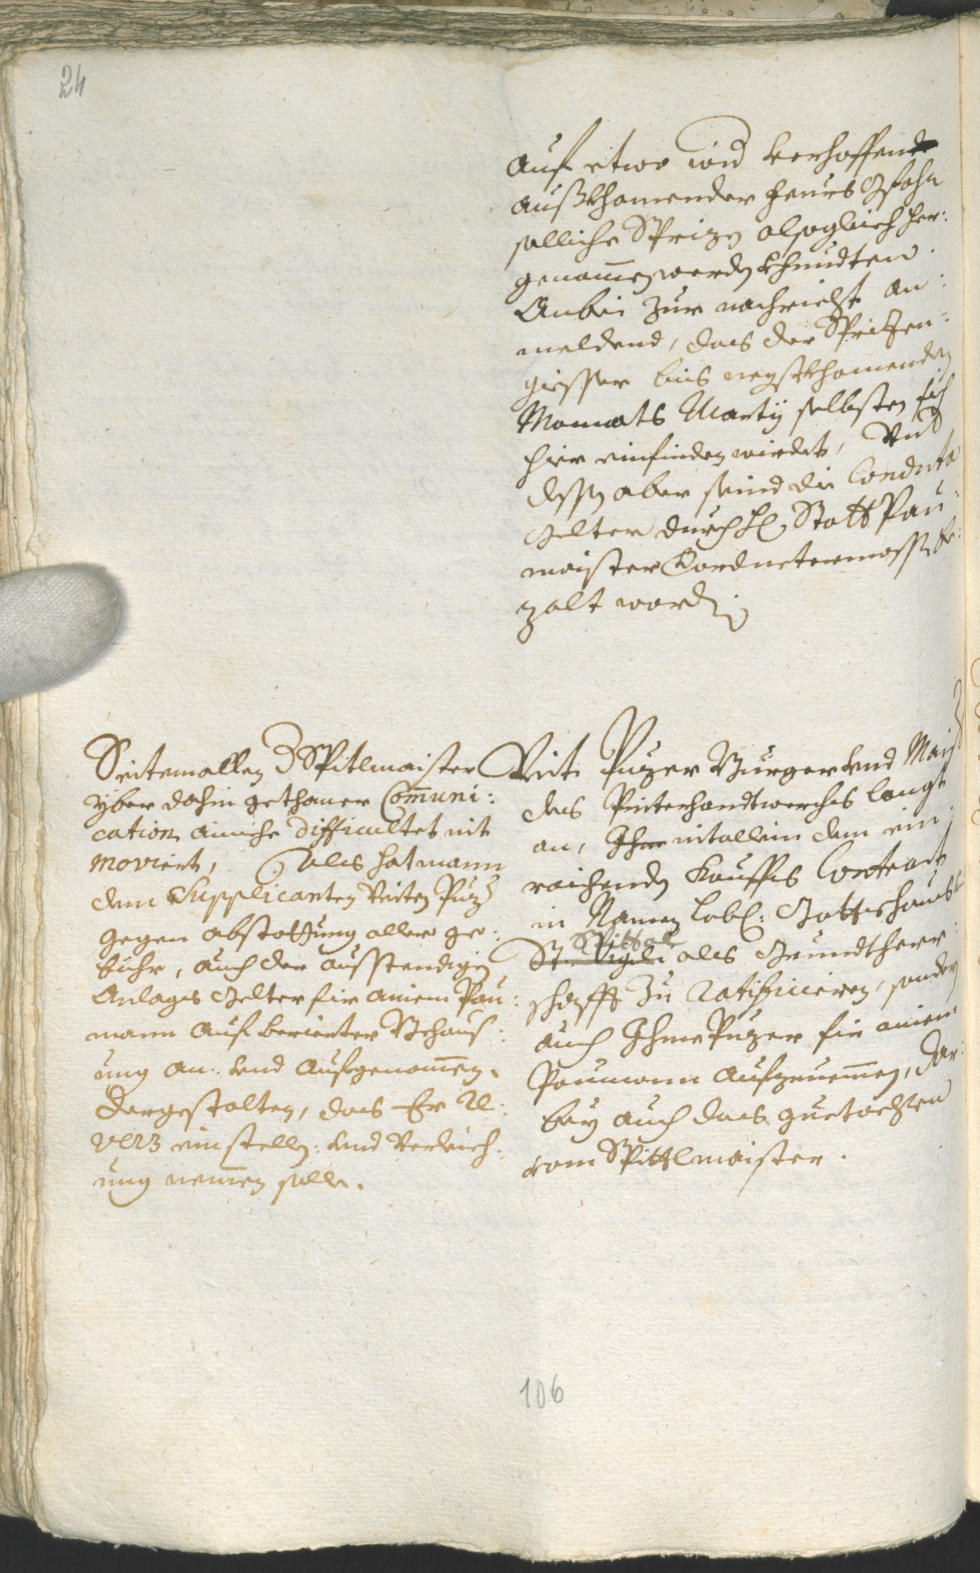 24
auf etwo wid verhoffende
außkhomender feurs Gfahr
solliche Sprizen alsogleich her:
genomen werden khundten.
Anbei zur nachricht an:
meldend, das der Sprizen:
giesser bis negstkhomenden
Monnats Martij selbsten sich
hier einfinden wirdet,
dessen aber seind die Conduta
Gelter durch H: Statt Pau:
maister Verordnetermassen be:
zalt worden
Seitemallen d Spitlmaister
yber dahin gethaner Communi:
cation ainiche difficultet nit
moviert, Als hat mann
dem Supplicanten Veiten Puz
gegen abstattung aller ge:
bühr, auch der ausstendigen
Anlags Gelter für ainem Pau:
mann auf berierter Behaus:
ung an: und aufgenomen.
Dergestalten, das Er Re:
vers einstellen: und Verleich:
ung nemen solle.
Veit Puzer Burger und Maister
des Pinterhandtwerchs langt
an, Ihme nit allein den ein:
raichenden Kauffs Contract
in Namen lobl: Gottshaus
Spittal
St. Vigili als Grundtherr:
schafft zu Ratificieren, sondern
auch Ihme Puzer für ainem
Paumann aufzunemen, Dar:
bey auch das guetachten
vom Spittlmaister.
106